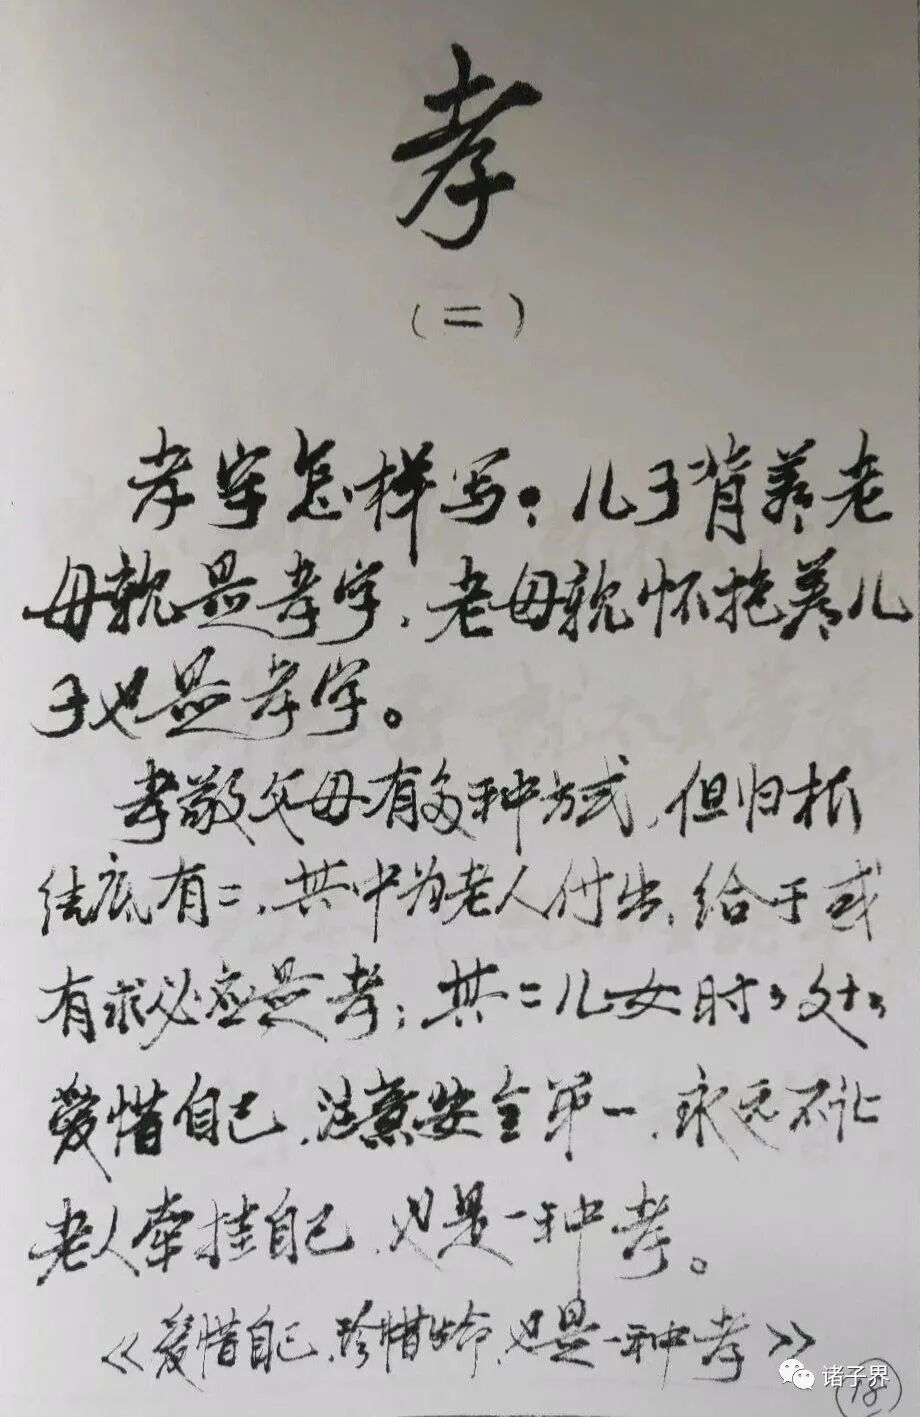 孝
（二）
孝字怎样写：儿子背养老
母就是孝字，老母就怀抱养儿
子也是孝字。
孝敬父母有多种方式，但归根
结底有二，其中为老人付出，给于或
有求必应是孝；其二儿女时时处处
爱惜自己，注意安全第一，永远不让
老人牵挂自己，也是一种孝。
《爱惜自己，珍惜生命，也是一种孝》
诸子界